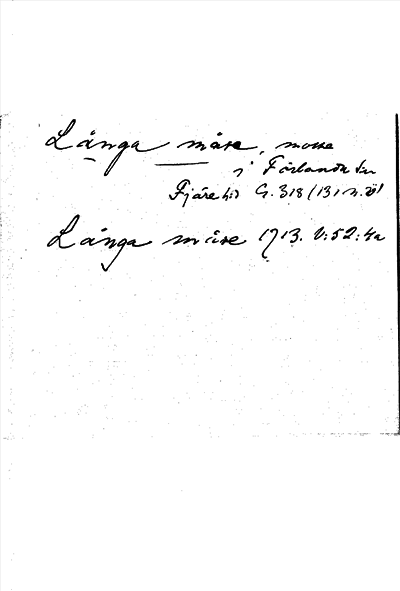 Långa måse, mosse
i Förlanda sn
Fjäre hd G. 318 (131 n.ö)
Långa måse 1713. V:52:4a